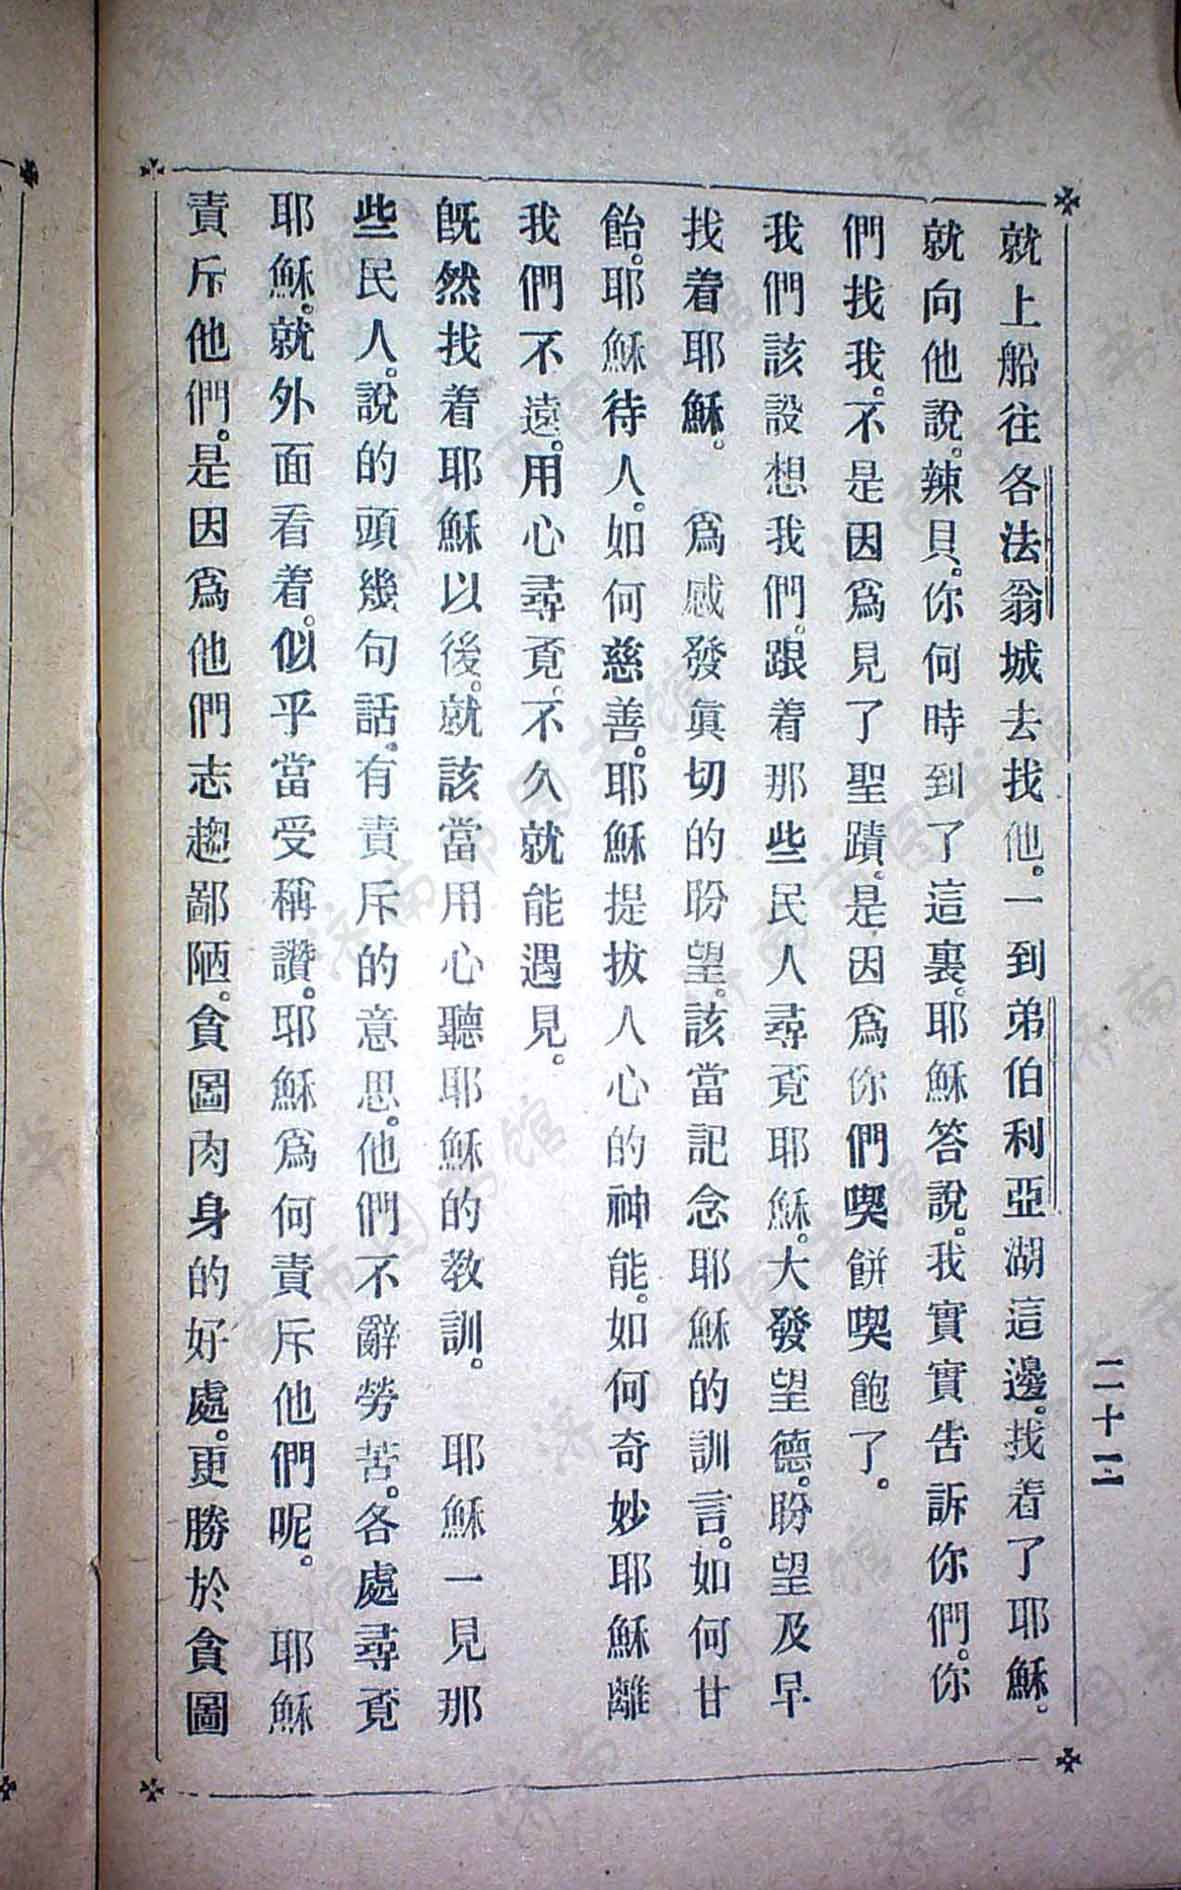 就上船往各法翁城去找他。一到弟伯利亞湖這邊。找着了耶穌。
就向他說。辣貝。你何時到了這裏。耶穌答說。我實實告訴你們。你
們找我。不是因爲見了聖蹟。是因爲你們喫餅喫飽了。
我們該設想我們。跟着那些民人尋覔耶穌。大發望德。盼望及早
找着耶穌。　爲感發眞切的盼望。該當記念耶穌的訓言。如何甘
飴。耶穌待人。如何慈善。耶穌提拔人心的神能。如何奇妙耶穌離
我們不遠。用心尋覔。不久就能遇見。
旣然找着耶穌以後。就該當用心聽耶穌的教訓。　耶穌一見那
些民人。說的頭幾句話。有責斥的意思。他們不辭勞苦。各處尋覔
耶穌。就外面看着。似乎當受稱讚。耶穌爲何責斥他們呢。　耶穌
責斥他們。是因爲他們志趨鄙陋。貪圖肉身的好處。更勝於貪圖
二十三
济南市图书馆